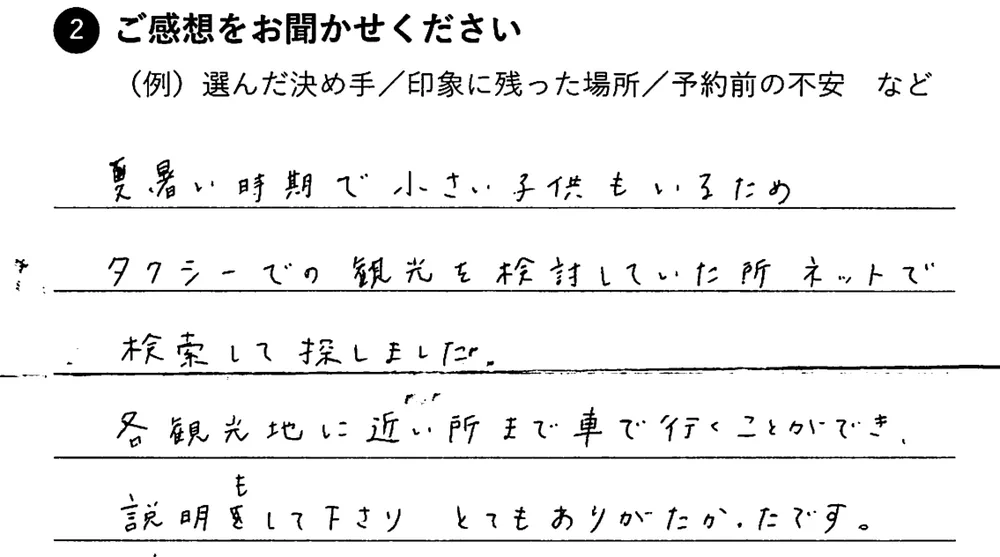 2 ご感想をお聞かせください
（例）選んだ決め手／印象に残った場所／予約前の不安　など
夏暑い時期で小さい子供もいるため
タクシーでの観光を検討していた所 ネットで
検索して探しました。
各観光地に近い所まで車で行くことができ、
説明もして下さり とてもありがたかったです。